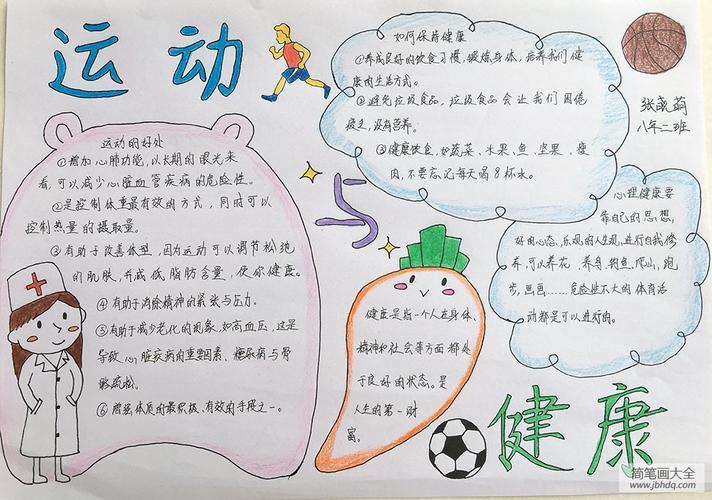 运动
与
健康
如何保持健康
①养成良好的饮食习惯，锻炼身体，培养我们健
康的生活方式。
②避免垃圾食品，垃圾食品会让我们困倦
疲乏，没有营养。
③健康饮食，如蔬菜、水果、鱼、坚果、瘦
肉，不要忘记每天喝8杯水。
八年二班
运动的好处
①增加心肺功能，以长期的眼光来
看，可以减少心脏血管疾病的危险性。
②是控制体重最有效的方式，同时可以
控制热量的摄取量。
③有助于改善体型，因为运动可以调节松弛
的肌肤，并减低脂肪含量，使你健康。
④有助于消除精神的紧张与压力。
⑤有助于减少老化的现象，如高血压，这是
导致心脏疾病的重要因素、糖尿病与骨
骼疏松。
⑥增强体质的最积极、有效的手段之一。
健康是指一个人在身体、
精神和社会等方面都处
于良好的状态。是
人生的第一财
富。
心理健康要
靠自己的思想，
好的心态、乐观的人生观，进行自我修
养，可以养花、养鸟、钓鱼、爬山、跑
步、画画……危险性不大的体育活
动都是可以进行的。
简笔画大全
www.jbhdq.com